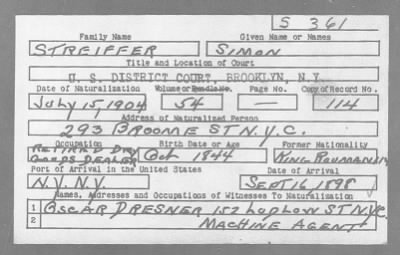 S 361
Family Name Given Name or Names
STREIFFER SIMON
Title and Location of Court
U. S. DISTRICT COURT, BROOKLYN, N.Y.
Date of Naturalization Volume or Bundle No. Page No. Copy of Record No.
July 15, 1904 54 — 114
Address of Naturalized Person
293 BROOME ST N.Y.C.
Occupation Birth Date or Age Former Nationality
RETIRED DRY
GOODS DEALER Oct 1844 KING ROUMANIA
Port of Arrival in the United States Date of Arrival
N.Y. N.Y. SEPT 16, 1898
Names, Addresses and Occupations of Witnesses To Naturalization
1 OSCAR DRESNER 152 LUDLOW ST N.Y.C.
2 MACHINE AGENT